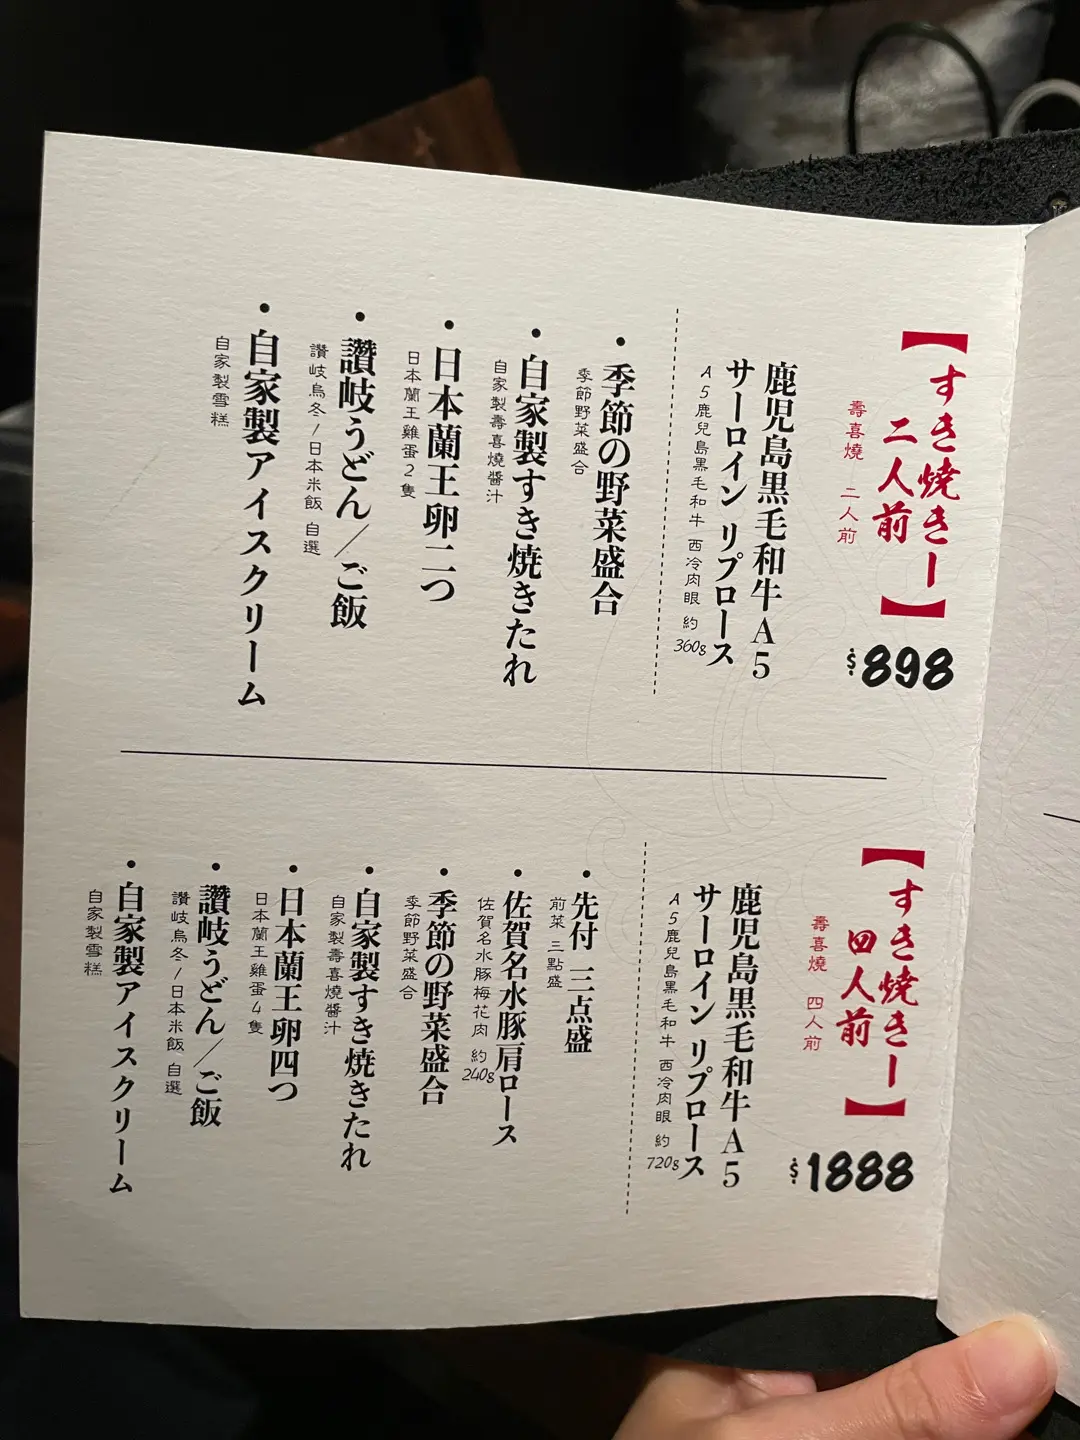 【すき焼きー
二人前】
壽喜燒 二人前
$898
鹿児島黒毛和牛A5
サーロイン リブロース
A5鹿兒島黒毛和牛 西冷肉眼 約360g
・季節の野菜盛合
季節野菜盛合
・自家製すき焼きたれ
自家製壽喜燒醬汁
・日本蘭王卵二つ
日本蘭王雞蛋2隻
・讚岐うどん/ご飯
讚岐烏冬/日本米飯 自選
・自家製アイスクリーム
自家製雪糕
【すき焼きー
四人前】
壽喜燒 四人前
$1888
鹿児島黒毛和牛A5
サーロイン リブロース
A5鹿兒島黒毛和牛 西冷肉眼 約720g
・先付 三点盛
前菜 三點盛
・佐賀名水豚肩ロース
佐賀名水豚梅花肉 約240g
・季節の野菜盛合
季節野菜盛合
・自家製すき焼きたれ
自家製壽喜燒醬汁
・日本蘭王卵四つ
日本蘭王雞蛋4隻
・讚岐うどん/ご飯
讚岐烏冬/日本米飯 自選
・自家製アイスクリーム
自家製雪糕